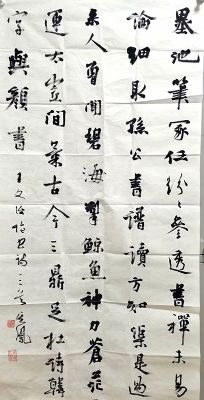 墨池筆冢任紛々參透書禪未易
論細取孫公書譜讀方知渠是過
來人曾聞碧海掣鯨魚神力蒼茫
運太虛間氣古今三鼎足杜詩韓
字與顏書
王文治論書詩二首